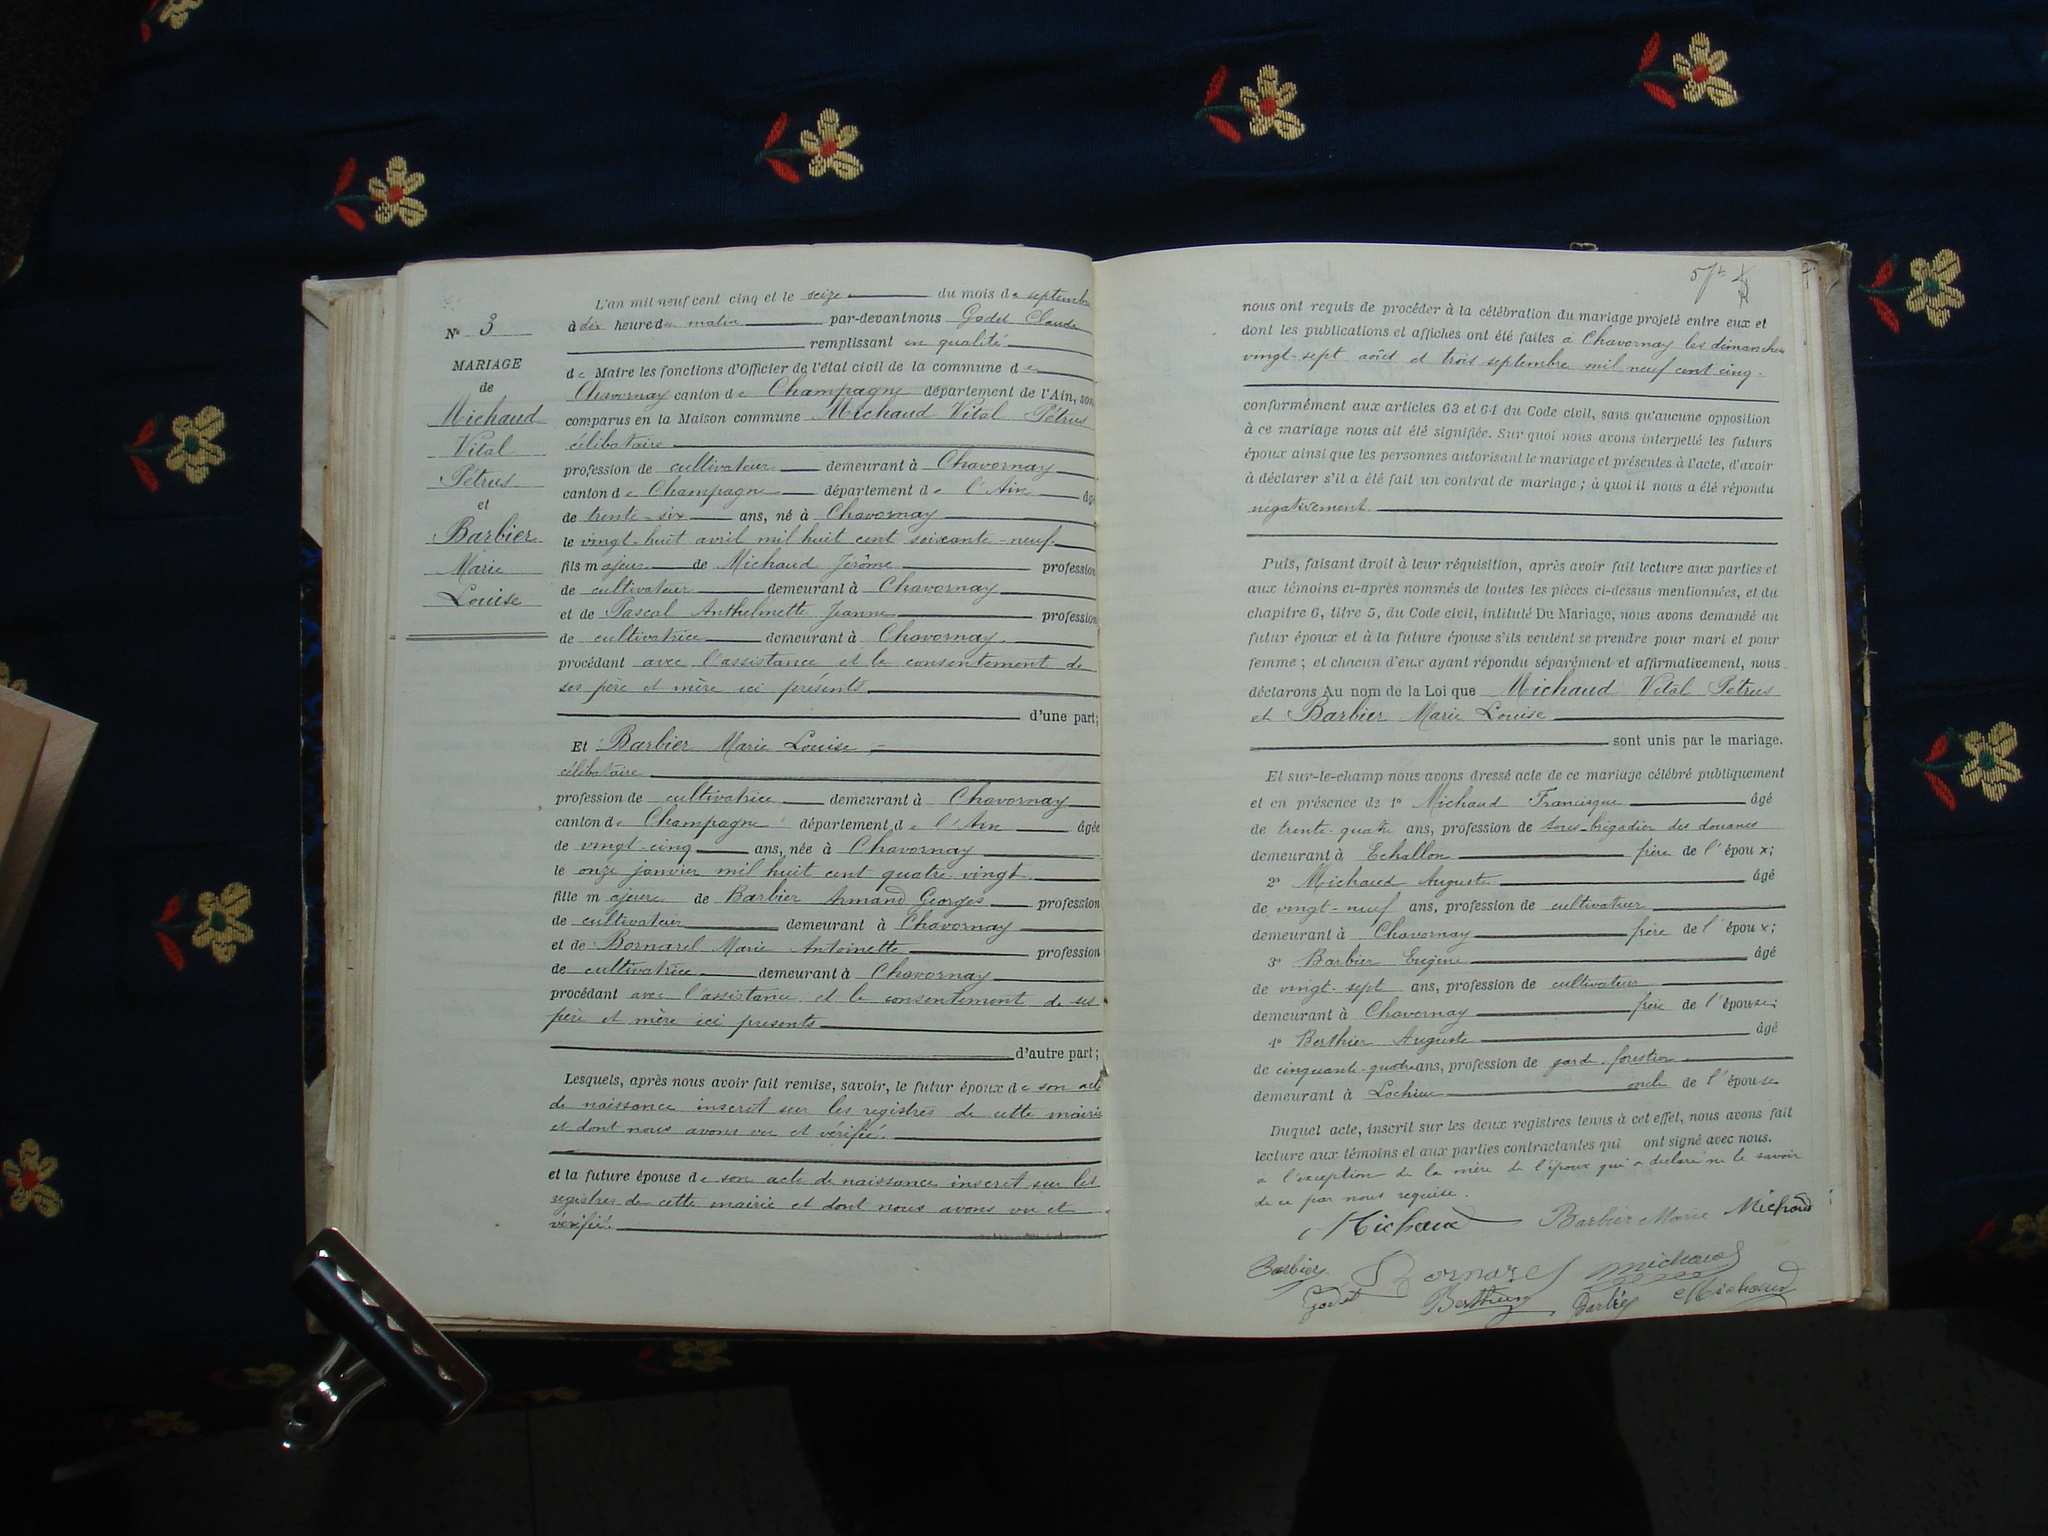 N° 3
MARIAGE
de
Michaud
Vital
Pétrus
et
Barbier
Marie
Louise
L'an mil neuf cent cinq et le seize du mois de septembre
à dix heures du matin par-devant nous Godet Claude
remplissant en qualité
de Maire les fonctions d'Officier de l'état civil de la commune de
Chavornay canton de Champagne département de l'Ain, son
comparus en la Maison commune Michaud Vital Pétrus
célibataire
profession de cultivateur demeurant à Chavornay
canton de Champagne département de l'Ain âgé
de trente-six ans, né à Chavornay
le vingt-huit avril mil huit cent soixante-neuf
fils majeur de Michaud Jérôme profession
de cultivateur demeurant à Chavornay
et de Pascal Anthelmette Jeanne profession
de cultivatrice demeurant à Chavornay
procédant avec l'assistance et le consentement de
ses père et mère ici présents
d'une part;
Et Barbier Marie Louise
célibataire
profession de cultivatrice demeurant à Chavornay
canton de Champagne département de l'Ain âgée
de vingt-cinq ans, née à Chavornay
le onze janvier mil huit cent quatre-vingt
fille majeure de Barbier Armand Georges profession
de cultivateur demeurant à Chavornay
et de Bornarel Marie Antoinette profession
de cultivatrice demeurant à Chavornay
procédant avec l'assistance et le consentement de ses
père et mère ici présents
d'autre part;
Lesquels, après nous avoir fait remise, savoir, le futur époux de son acte
de naissance inscrit sur les registres de cette mairie
et dont nous avons vu et vérifié
et la future épouse de son acte de naissance inscrit sur les
registres de cette mairie et dont nous avons vu et
vérifié
nous ont requis de procéder à la célébration du mariage projeté entre eux et
dont les publications et affiches ont été faites à Chavornay les dimanches
vingt-sept août et trois septembre mil neuf cent cinq
conformément aux articles 63 et 64 du Code civil, sans qu'aucune opposition
à ce mariage nous ait été signifiée. Sur quoi nous avons interpellé les futurs
époux ainsi que les personnes autorisant le mariage et présentes à l'acte, d'avoir
à déclarer s'il a été fait un contrat de mariage; à quoi il nous a été répondu
négativement.
Puis, faisant droit à leur réquisition, après avoir fait lecture aux parties et
aux témoins ci-après nommés de toutes les pièces ci-dessus mentionnées, et du
chapitre 6, titre 5, du Code civil, intitulé Du Mariage, nous avons demandé au
futur époux et à la future épouse s'ils veulent se prendre pour mari et pour
femme; et chacun d'eux ayant répondu séparément et affirmativement, nous
déclarons Au nom de la Loi que Michaud Vital Pétrus
et Barbier Marie Louise
sont unis par le mariage.
Et sur-le-champ nous avons dressé acte de ce mariage célébré publiquement
et en présence de 1° Michaud Francisque âgé
de trente-quatre ans, profession de sous-brigadier des douanes
demeurant à Echallon frère de l'époux;
2° Michaud Auguste âgé
de vingt-neuf ans, profession de cultivateur
demeurant à Chavornay frère de l'époux;
3° Barbier Eugène âgé
de vingt-sept ans, profession de cultivateur
demeurant à Chavornay frère de l'épouse;
4° Berthier Auguste âgé
de cinquante-quatre ans, profession de garde forestier
demeurant à Lochieu oncle de l'épouse
Duquel acte, inscrit sur les deux registres tenus à cet effet, nous avons fait
lecture aux témoins et aux parties contractantes qui ont signé avec nous.
a l'exception de la mère de l'époux qui a déclaré ne le savoir
de ce par nous requise.
Michaud Barbier Marie Michaud
Barbier Bornarel Michaud
Godet Berthier Barbier Michaud